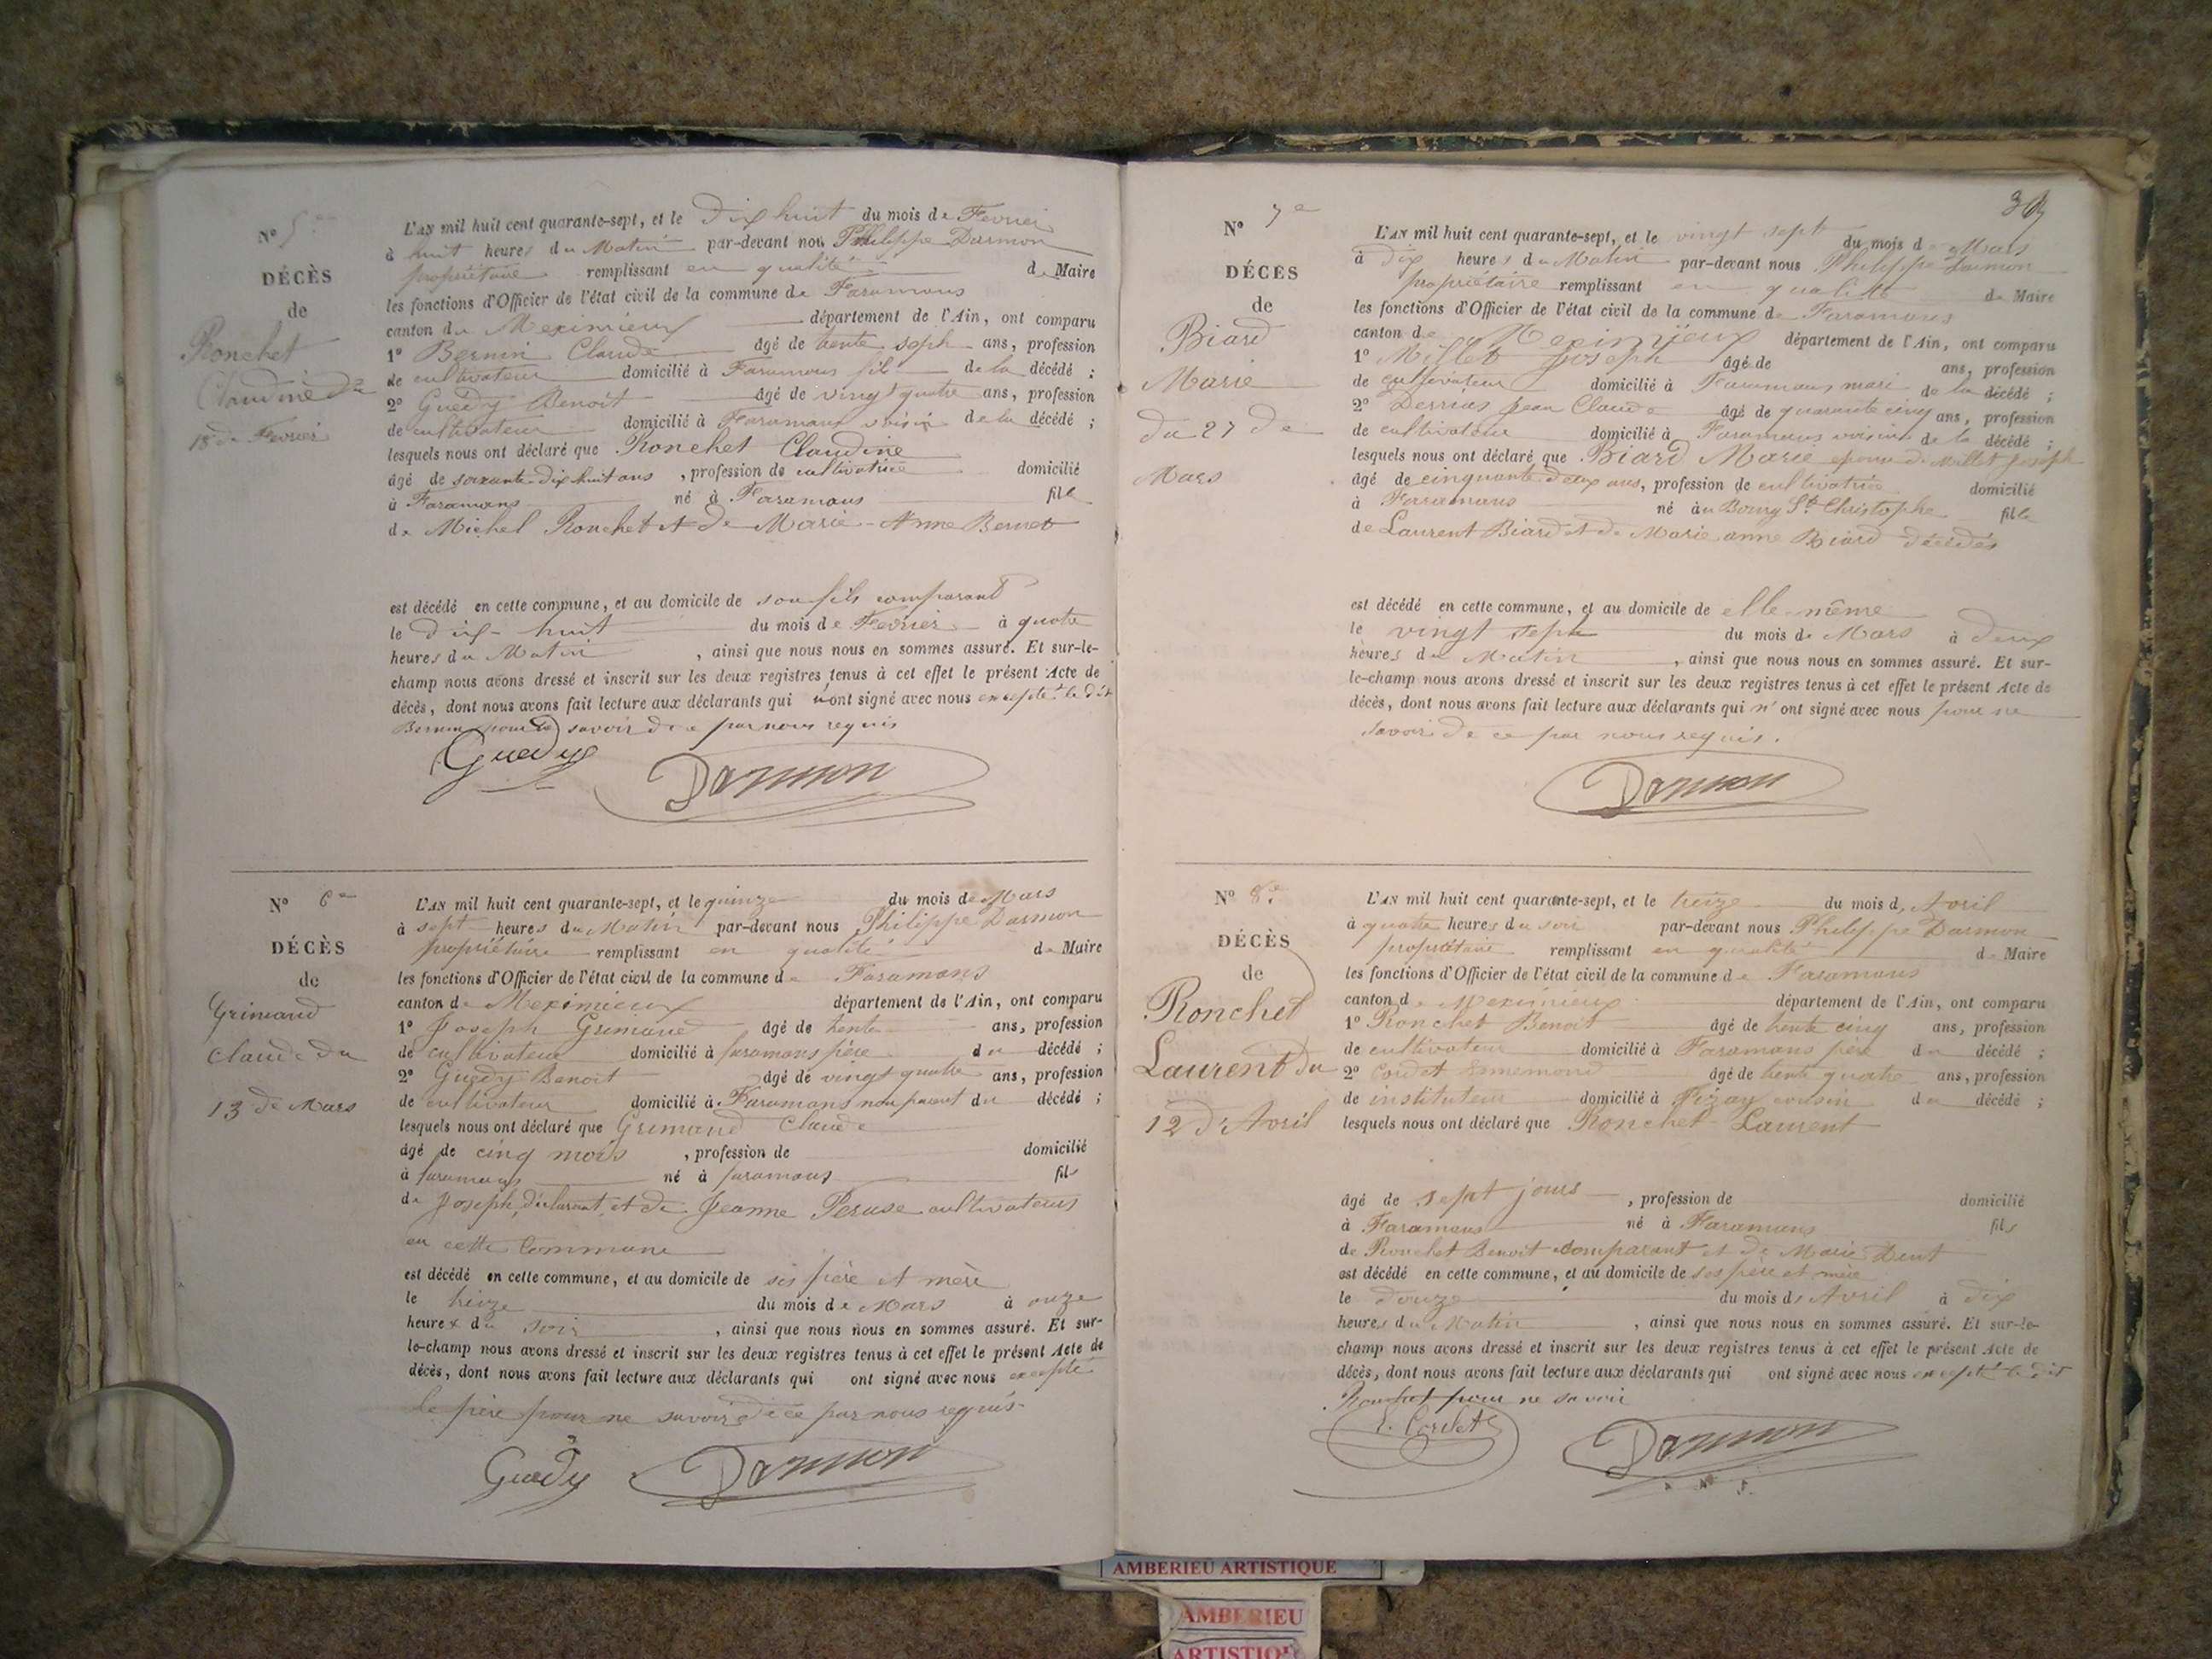 N° 5e
DÉCÈS
de
Ronchet
Claudine du
18 de Fevrier
L'AN mil huit cent quarante-sept, et le Dix huit du mois de Fevrier
à huit heures du Matin par-devant nous Philippe Darmon
propriétaire remplissant en qualité de Maire
les fonctions d'Officier de l'état civil de la commune de Faramans
canton de Meximieux département de l'Ain, ont comparu
1° Bernin Claude âgé de trente sept ans, profession
de cultivateur domicilié à Faramans fils de la décédé ;
2° Guedy Benoit âgé de vingt quatre ans, profession
de cultivateur domicilié à Faramans voisin de la décédé ;
lesquels nous ont déclaré que Ronchet Claudine
âgé de soixante-dix huit ans , profession de cultivatrice domicilié
à Faramans né à Faramans fille
de Michel Ronchet et de Marie-Anne Bernet
est décédé en cette commune, et au domicile de son fils comparant
le dix-huit du mois de Fevrier à quatre
heures du Matin , ainsi que nous nous en sommes assuré. Et sur-le-
champ nous avons dressé et inscrit sur les deux registres tenus à cet effet le présent Acte de
décès, dont nous avons fait lecture aux déclarants qui ont signé avec nous excepté le dit
Bernin pour savoir de ce par nous requis
Guedy Darmon
N° 6e
DÉCÈS
de
Grimaud
Claude du
13 de Mars
L'AN mil huit cent quarante-sept, et le quinze du mois de Mars
à sept heures du Matin par-devant nous Philippe Darmon
propriétaire remplissant en qualité de Maire
les fonctions d'Officier de l'état civil de la commune de Faramans
canton de Meximieux département de l'Ain, ont comparu
1° Joseph Grimaud âgé de trente ans, profession
de cultivateur domicilié à faramans père du décédé ;
2° Guedy Benoit âgé de vingt quatre ans, profession
de cultivateur domicilié à Faramans non parent du décédé ;
lesquels nous ont déclaré que Grimaud Claude
âgé de cinq mois , profession de domicilié
à faramans né à faramans fils
de Joseph, déclarant, et de Jeanne Peruse cultivateurs
en cette Commune
est décédé en cette commune, et au domicile de ses père et mère
le treize du mois de Mars à onze
heures du soir , ainsi que nous nous en sommes assuré. Et sur-
le-champ nous avons dressé et inscrit sur les deux registres tenus à cet effet le présent Acte de
décès, dont nous avons fait lecture aux déclarants qui ont signé avec nous excepté
le père pour ne savoir de ce par nous requis
Guedy Darmon
N° 7e
DÉCÈS
de
Biard
Marie
du 27 de
Mars
L'AN mil huit cent quarante-sept, et le vingt sept du mois de Mars
à dix heures du Matin par-devant nous Philippe Darmon
propriétaire remplissant en qualité de Maire
les fonctions d'Officier de l'état civil de la commune de Faramans
canton de Meximieux département de l'Ain, ont comparu
1° Millet Joseph âgé de ans, profession
de cultivateur domicilié à Faramans mari de la décédé ;
2° Derrias Jean Claude âgé de quarante cinq ans, profession
de cultivateur domicilié à Faramans voisin de la décédé ;
lesquels nous ont déclaré que Biard Marie epouse de Millet Joseph
âgé de cinquante deux ans, profession de cultivatrice domicilié
à Faramans né au Bourg St. Christophe fille
de Laurent Biard et de Marie anne Biard décédés
est décédé en cette commune, et au domicile de elle-même
le vingt sept du mois de Mars à deux
heures du Matin , ainsi que nous nous en sommes assuré. Et sur-
le-champ nous avons dressé et inscrit sur les deux registres tenus à cet effet le présent Acte de
décès, dont nous avons fait lecture aux déclarants qui n'ont signé avec nous pour ne
savoir de ce par nous requis.
Darmon
N° 8e
DÉCÈS
de
Ronchet
Laurent du
12 d'Avril
L'AN mil huit cent quarante-sept, et le treize du mois d'Avril
à quatre heures du soir par-devant nous Philippe Darmon
propriétaire remplissant en qualité de Maire
les fonctions d'Officier de l'état civil de la commune de Faramans
canton de Meximieux département de l'Ain, ont comparu
1° Ronchet Benoit âgé de trente cinq ans, profession
de cultivateur domicilié à Faramans père du décédé ;
2° Cordet Ennemond âgé de trente quatre ans, profession
de instituteur domicilié à Pizay cousin du décédé ;
lesquels nous ont déclaré que Ronchet Laurent
âgé de sept jours , profession de domicilié
à Faramans né à Faramans fils
de Ronchet Benoit comparant et de Marie Dent
est décédé en cette commune, et au domicile de ses père et mère
le douze du mois d'Avril à dix
heures du Matin , ainsi que nous nous en sommes assuré. Et sur-le-
champ nous avons dressé et inscrit sur les deux registres tenus à cet effet le présent Acte de
décès, dont nous avons fait lecture aux déclarants qui ont signé avec nous excepté le dit
Ronchet pour ne savoir
E. Cordet Darmon
AMBERIEU ARTISTIQUE
AMBERIEU
ARTISTIQUE